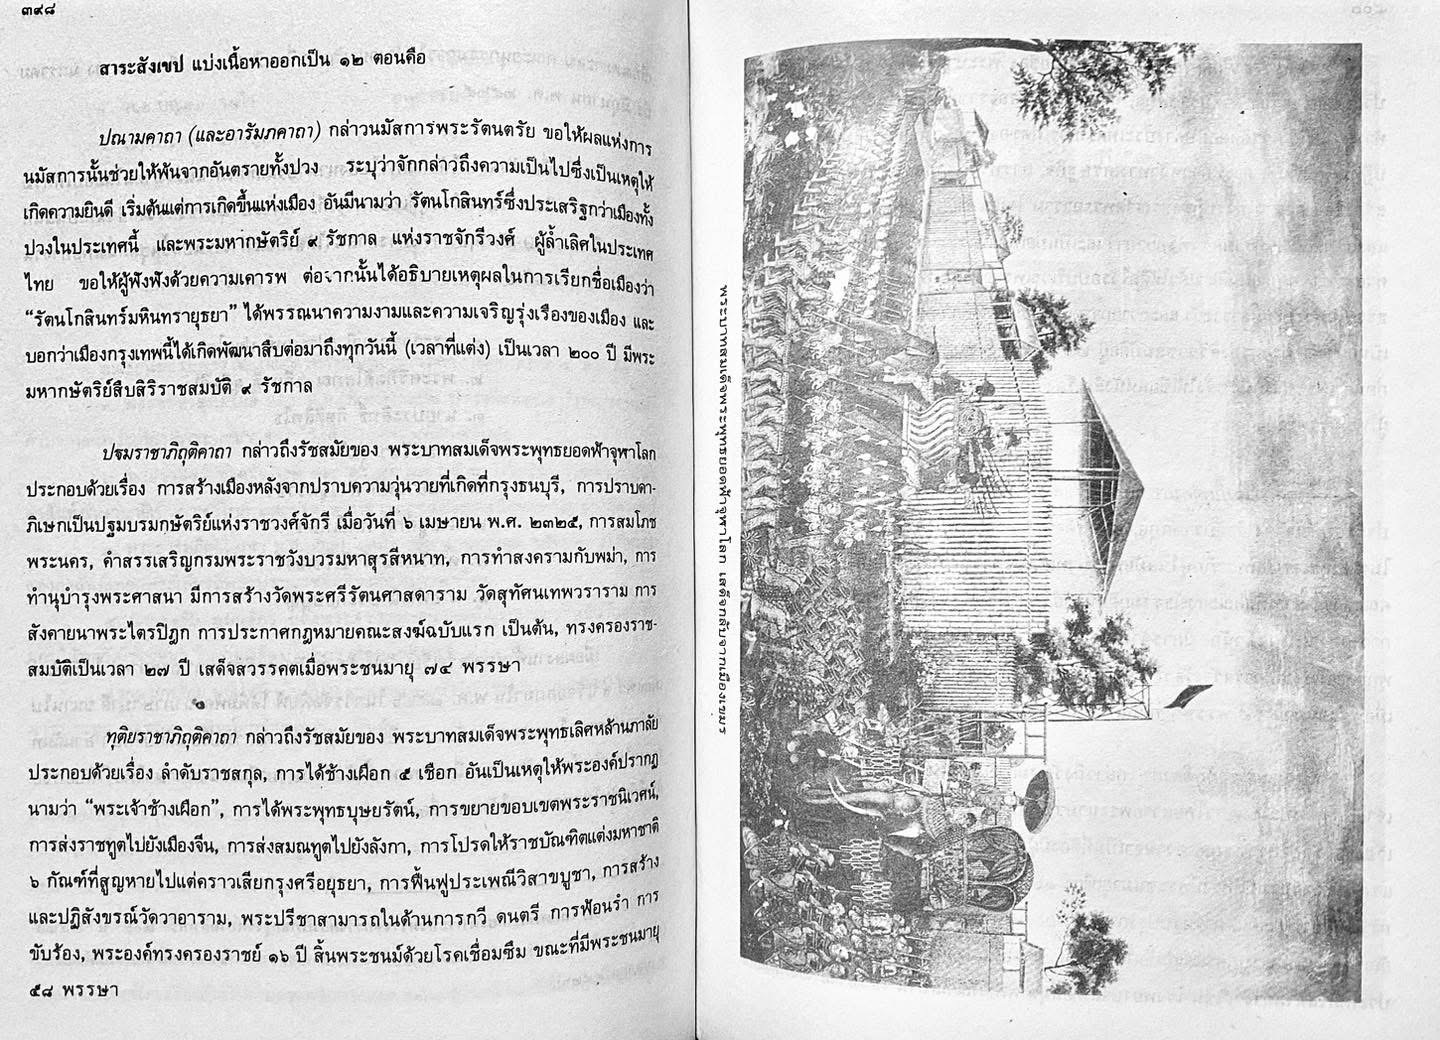 ๓๙๘
สาระสังเขป แบ่งเนื้อหาออกเป็น ๑๒ ตอนคือ
ปณามคาถา (และอารัมภคาถา) กล่าวนมัสการพระรัตนตรัย ขอให้ผลแห่งการ
นมัสการนั้นช่วยให้พ้นจากอันตรายทั้งปวง ระบุว่าจักกล่าวถึงความเป็นไปซึ่งเป็นเหตุให้
เกิดความยินดี เริ่มต้นแต่การเกิดขึ้นแห่งเมือง อันมีนามว่า รัตนโกสินทร์ซึ่งประเสริฐกว่าเมืองทั้ง
ปวงในประเทศนี้ และพระมหากษัตริย์ ๙ รัชกาล แห่งราชจักรีวงศ์ ผู้ล้ำเลิศในประเทศ
ไทย ขอให้ผู้ฟังฟังด้วยความเคารพ ต่อจากนั้นได้อธิบายเหตุผลในการเรียกชื่อเมืองว่า
“รัตนโกสินทร์มหินทรายุธยา” ได้พรรณนาความงามและความเจริญรุ่งเรืองของเมือง และ
บอกว่าเมืองกรุงเทพนี้ได้เกิดพัฒนาสืบต่อมาถึงทุกวันนี้ (เวลาที่แต่ง) เป็นเวลา ๒๐๐ ปี มีพระ
มหากษัตริย์สืบสิริราชสมบัติ ๙ รัชกาล
ปฐมราชาภิถุติคาถา กล่าวถึงรัชสมัยของ พระบาทสมเด็จพระพุทธยอดฟ้าจุฬาโลก
ประกอบด้วยเรื่อง การสร้างเมืองหลังจากปราบความวุ่นวายที่เกิดที่กรุงธนบุรี, การปราบดา-
ภิเษกเป็นปฐมบรมกษัตริย์แห่งราชวงศ์จักรี เมื่อวันที่ ๖ เมษายน พ.ศ. ๒๓๒๕, การสมโภช
พระนคร, คำสรรเสริญกรมพระราชวังบวรมหาสุรสีหนาท, การทำสงครามกับพม่า, การ
ทำนุบำรุงพระศาสนา มีการสร้างวัดพระศรีรัตนศาสดาราม วัดสุทัศนเทพวราราม การ
สังคายนาพระไตรปิฎก การประกาศกฎหมายคณะสงฆ์ฉบับแรก เป็นต้น, ทรงครองราช-
สมบัติเป็นเวลา ๒๗ ปี เสด็จสวรรคตเมื่อพระชนมายุ ๗๔ พรรษา
ทุติยราชาภิถุติคาถา กล่าวถึงรัชสมัยของ พระบาทสมเด็จพระพุทธเลิศหล้านภาลัย
ประกอบด้วยเรื่อง ลำดับราชสกุล, การได้ช้างเผือก ๕ เชือก อันเป็นเหตุให้พระองค์ปรากฏ
นามว่า “พระเจ้าช้างเผือก”, การได้พระพุทธบุษยรัตน์, การขยายขอบเขตพระราชนิเวศน์,
การส่งราชทูตไปยังเมืองจีน, การส่งสมณทูตไปยังลังกา, การโปรดให้ราชบัณฑิตแต่งมหาชาติ
๖ กัณฑ์ที่สูญหายไปแต่คราวเสียกรุงศรีอยุธยา, การฟื้นฟูประเพณีวิสาขบูชา, การสร้าง
และปฏิสังขรณ์วัดวาอาราม, พระปรีชาสามารถในด้านการกวี ดนตรี การฟ้อนรำ การ
ขับร้อง, พระองค์ทรงครองราชย์ ๑๖ ปี สิ้นพระชนม์ด้วยโรคเชื่อมซึม ขณะที่มีพระชนมายุ
๕๘ พรรษา
พระบาทสมเด็จพระพุทธยอดฟ้าจุฬาโลก เสด็จกลับจากเมืองเขมร